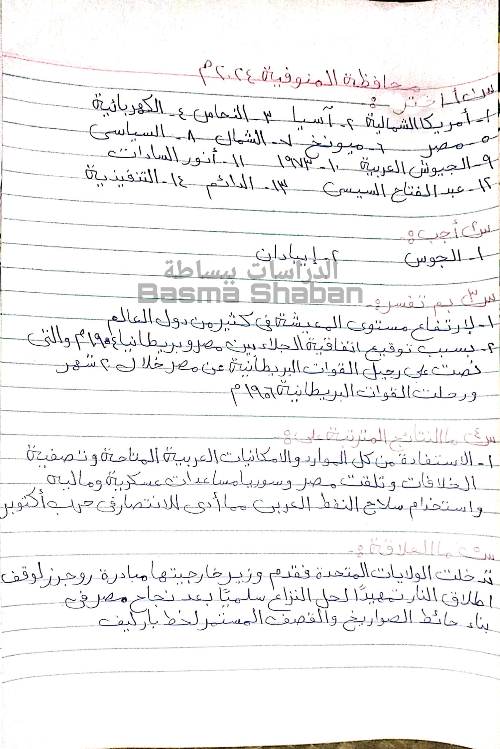 محافظة المنوفية ٢٠٢٤م
س١ اختر :-
١- أمريكا الشمالية ٢- آسيا ٣- النحاس ٤- الكهربائية
٥- مصر ٦- ميونخ ٧- الشمال ٨- السياسي
٩- الجيوش العربية ١٠- ١٩٧٣ ١١- أنور السادات
١٢- عبد الفتاح السيسي ١٣- الدائم ١٤- التنفيذية
س٢ أجب :-
١- الجوس ٢- إيبادان
الدراسات ببساطة
Basma Shaban
س٣ بم تفسر :-
١- لإرتفاع مستوى المعيشة في كثير من دول العالم
٢- بسبب توقيع اتفاقية الجلاء بين مصر وبريطانيا ١٩٥٤م والتي
نصت على رحيل القوات البريطانية عن مصر خلال ٢٠ شهر
ورحلت القوات البريطانية ١٩٥٦م
س٤ ما النتائج المترتبة على :-
١- الاستفادة من كل الموارد والامكانيات العربية المتاحة وتصفية
الخلافات وتلقت مصر وسوريا مساعدات عسكرية ومالية
واستخدام سلاح النفط العربي مما أدى للانتصار في حرب أكتوبر
س٥ ما العلاقة :-
تدخلت الولايات المتحدة فقدم وزير خارجيتها مبادرة روجرز لوقف
اطلاق النار تمهيدًا لحل النزاع سلميًا بعد نجاح مصر في
بناء حائط الصواريخ والقصف المستمر لخط بارليف